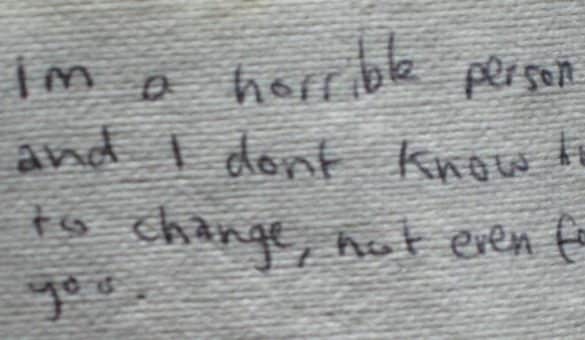 im a horrible person
and I dont know
to change, not even
you.